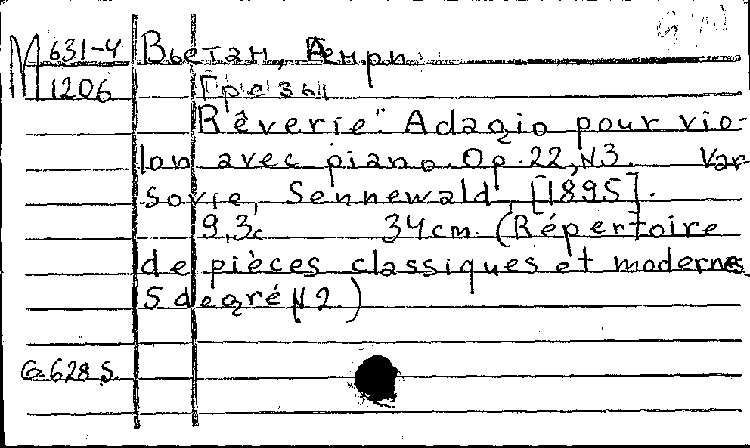 М 631-4 Вьетан, Анри
1206 Грезы
Rêverie". Adagio pour vio-
lon avec piano. Op. 22, N3. Var-
sovie, Sennewald, [1895].
9,3с 34cm. (Répertoire
de pièces classiques et moderne.
5 degré N2.)
G 628 S.